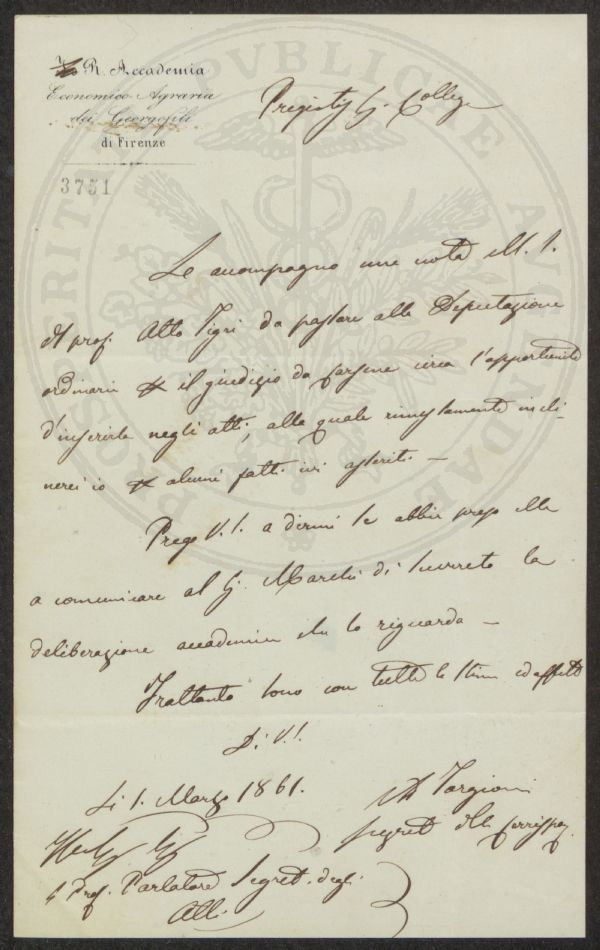 R. Accademia
Economico-Agraria
dei Georgofili
di Firenze
3751
PROSPERITATI PUBLICAE AUGENDAE
Sig. Collega
Le accompagno una nota M. S.
del prof. Atto Tigri da passare alla Deputazione
ordinaria il giudizio da farsene circa l'opportunità
d'inserirla negli atti, alla quale inclinerei io
alcuni fatti ivi asseriti. —
Prego V. S. a dirmi se abbia preso ella
a comunicare al Sig. Marchi di la
deliberazione accademica che lo riguarda —
Frattanto sono con tutta la stima ed affetto
Di V. S.
Li 1. Marzo 1861.
A Targioni
Segret. delle corrisp.
Prof. Parlatore Segret. degli
Atti